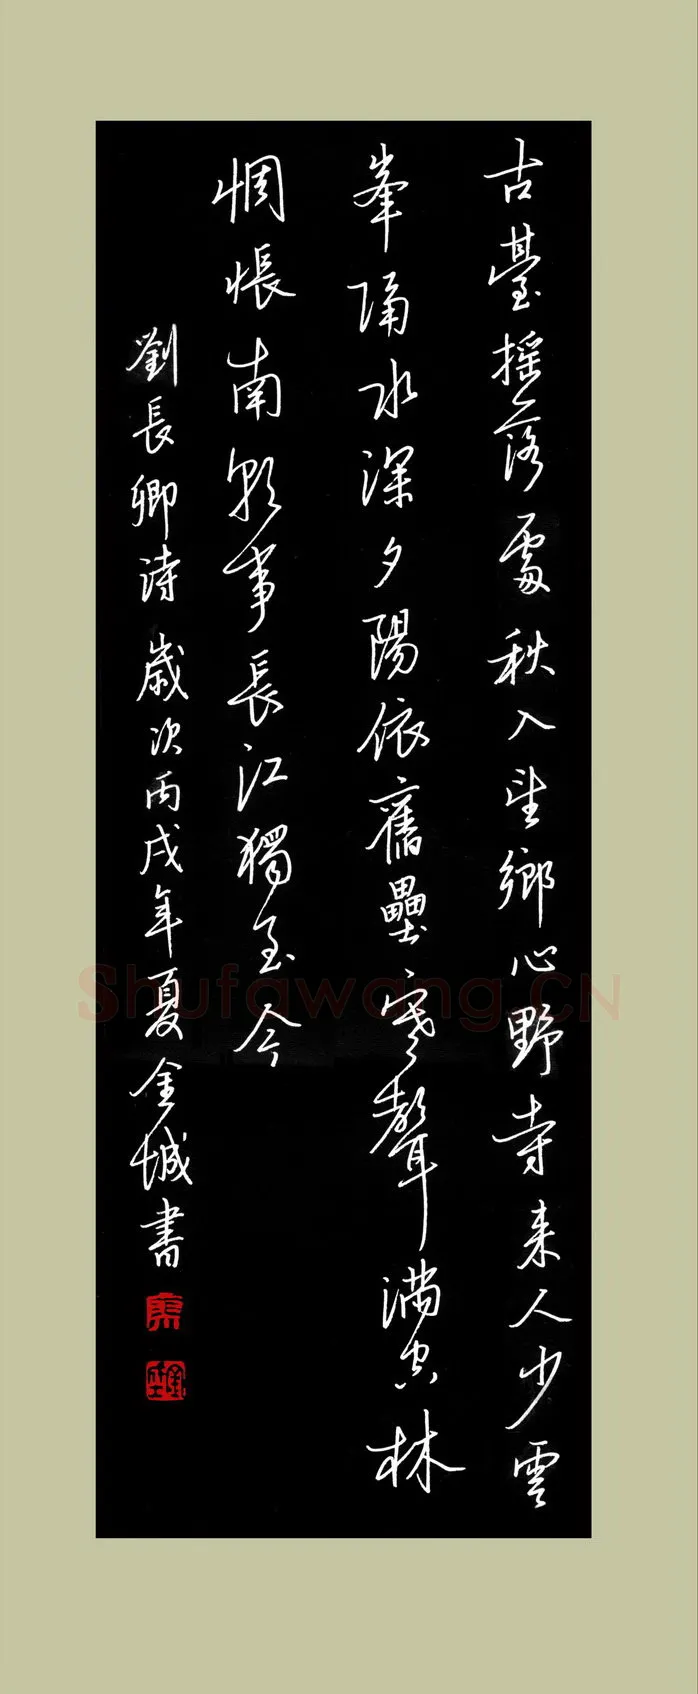 古臺摇落處秋入望鄉心野寺来人少雲
峯隔水深夕陽依舊壘寒聲滿空林
惆悵南朝事長江獨至今
劉長卿诗歲次丙戌年夏金城書
Shufawang.CN